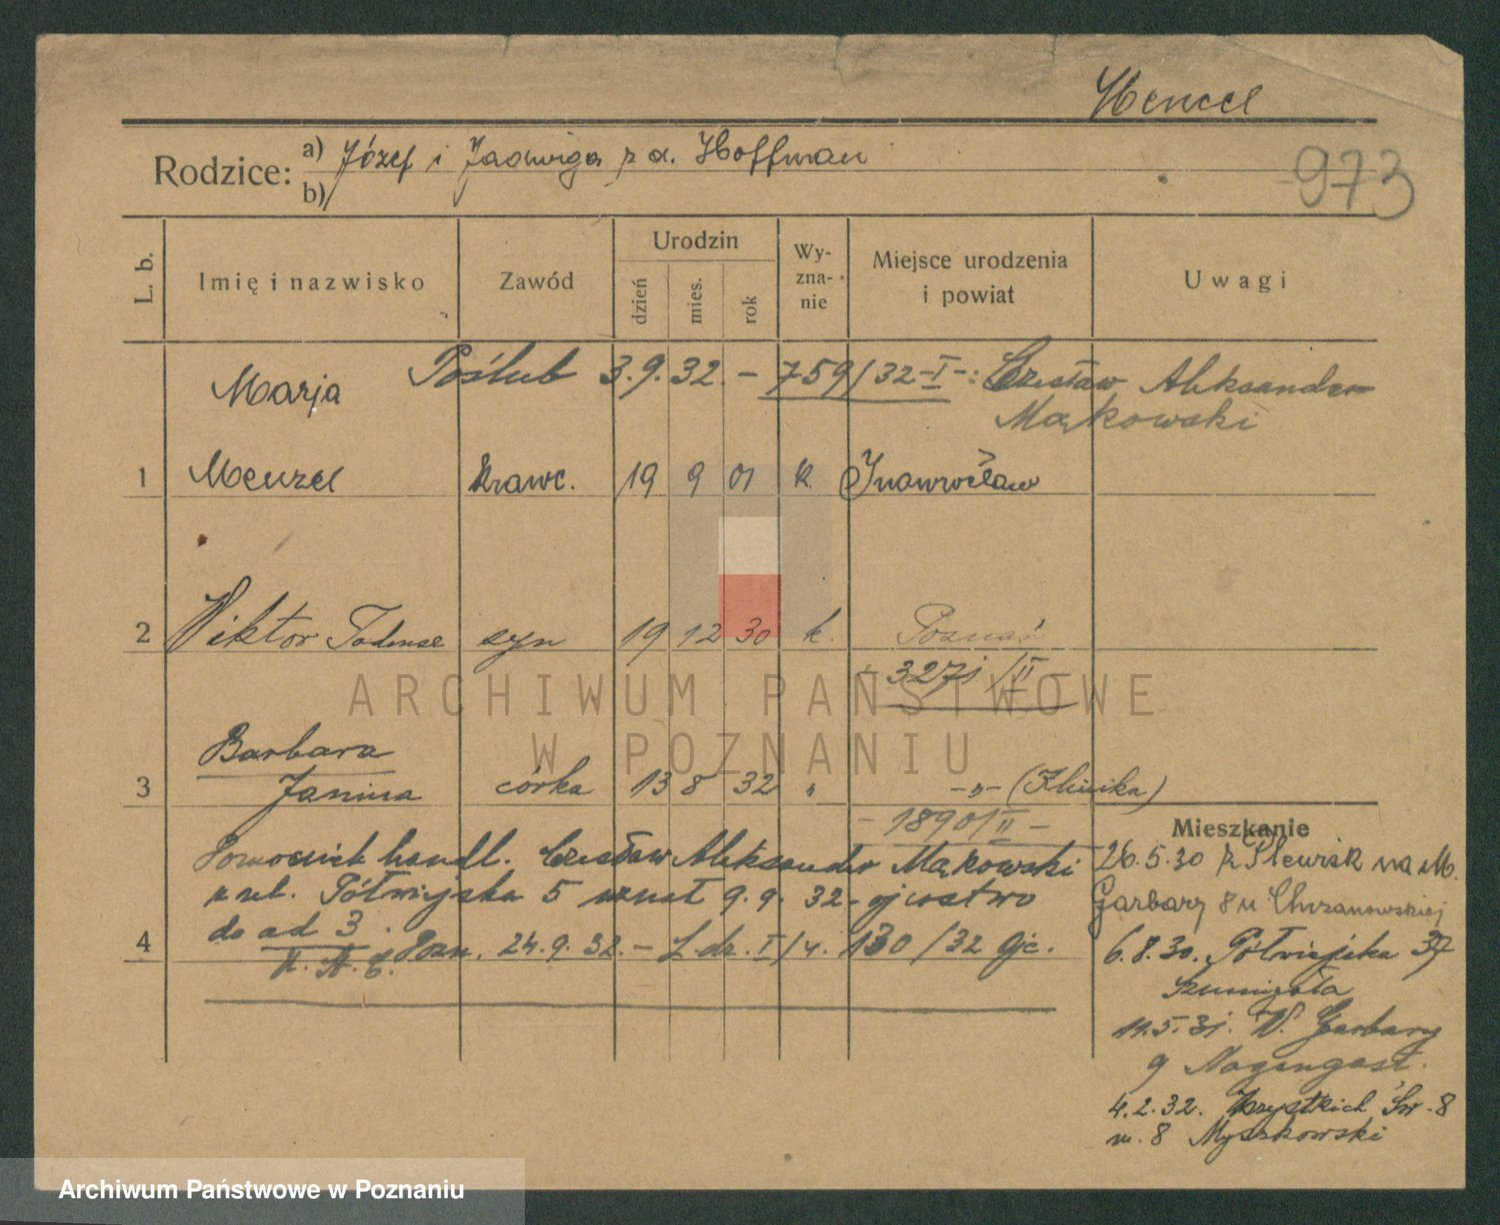 Mencel
Rodzice: a) Józef i Jadwiga z d. Hoffman
b)
973
L. b.
Imię i nazwisko
Zawód
Urodzin
dzień
mies.
rok
Wy-
zna-
nie
Miejsce urodzenia
i powiat
Uwagi
Poślub 3.9.32. - 759/32-I-: Czesław Aleksander
Mąkowski
Marja
1 Menzel krawc. 19 9 01 k. Inowrocław
2 Wiktor Tadeusz syn 19 12 30 k. Poznań
- 3271/II -
3 Barbara
Janina córka 13 8 32 " -„- (Klinika)
- 1890/II -
Pomocnik handl. Czesław Aleksander Mąkowski
z ul. Półwiejska 5 uznał 9.9.32. ojcostwo
do ad 3.
4 Pozn. 24.9.32. - L.dz. I/4. 130/32 Ojc.
Mieszkanie
26.5.30 z Plewisk na M.
Garbary 8 u Chrzanowskiej
6.8.30. Półwiejska 37
Szumigała
11.5.31. W. Garbary
9 Nagengast.
4.2.32. Wszystkich Św. 8
m. 8 Myszkowski
ARCHIWUM PAŃSTWOWE
W POZNANIU
Archiwum Państwowe w Poznaniu